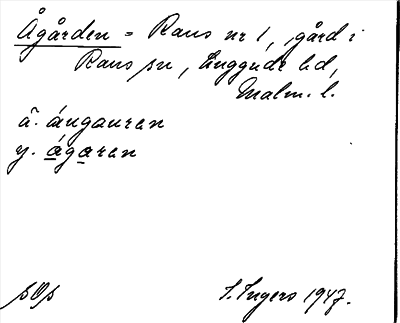 Ågården = Raus nr 1, gård i
Raus sn, Luggude hd,
Malm. l.
ä. áugauren
y. ágaren
sOs
S. Ingers 1947.